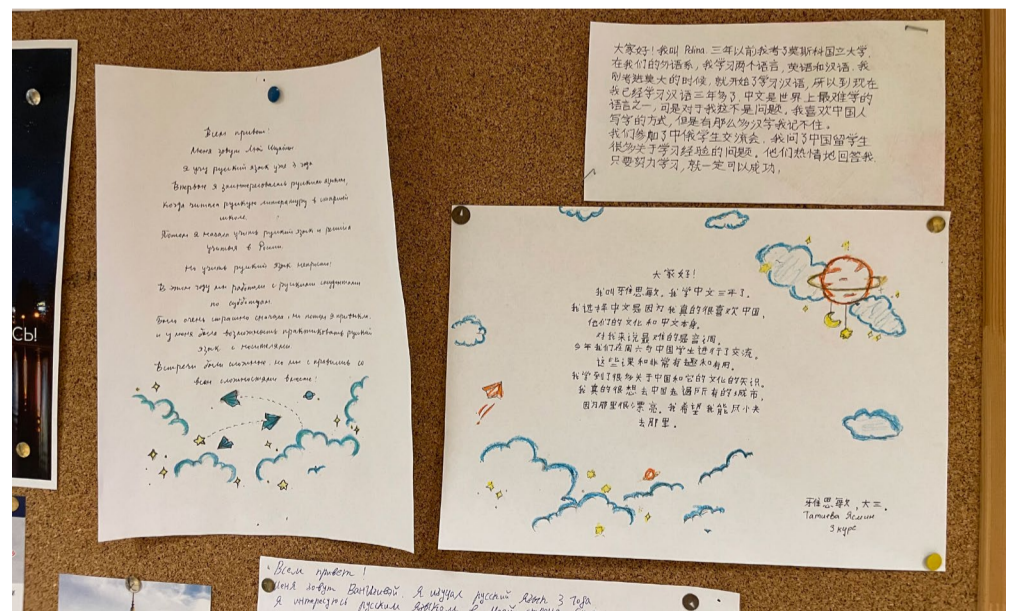 СЬ!
Всем привет!
Меня зовут
Я учу русский язык уже 3 года
Впервые я заинтересовалась русским языком,
когда читала русскую литературу в старшей
школе.
Потом я начала учить русский язык и решила
учиться в России.
Но учить русский язык непросто!
В этом году мы работали с русскими студентами
по субботам.
Было очень страшно сначала, но потом я привыкла.
и у меня была возможность практиковать русский
язык с носителями.
Встречи были сложные, но мы справились со
всеми сложностями вместе!
大家好!我叫 Polina. 三年以前我考了莫斯科国立大学.
在我们的外语系,我学习两个语言,英语和汉语.我
刚考进莫大的时候,就开始了学习汉语,所以到现在
我已经学习汉语三年多了.中文是世界上最难学的
语言之一,可是对于我这不是问题。我喜欢中国人
写字的方式,但是有那么多汉字我记不住。
我们参加了中俄学生交流会,我问了中国留学生
很多关于学习经验的问题。他们热情地回答我.
只要努力学习,就一定可以成功.
大家好!
我叫牙雅思敏。我学中文三年了.
我选择中文是因为我真的很喜欢中国,
他们的文化和中文本身。
对我来说最难的是言调。
今年我们在周六与中国学生进行了交流。
这些课和非常有趣和有用。
我学到了很多关于中国和它的文化的矢识。
我真的很想去中国走遍所有的城市,
因为那里很漂亮。我希望我能尽小夫
去那里。
牙雅思敏,大三.
Татиева Ясмин
3 курс
Всем привет!
Меня зовут Я изучал русский язык 3 года.
Я интересуюсь русским языком